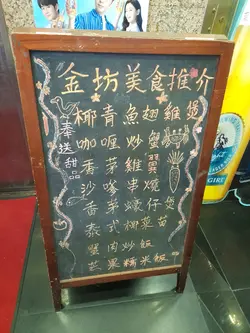 金坊美食推介
奉送甜品
椰青魚翅雞煲
咖喱炒蟹
香茅雞翼
沙嗲串燒
香茅蠔仔煲
泰式椒菜苗
蟹肉炒飯
芒果糯米飯